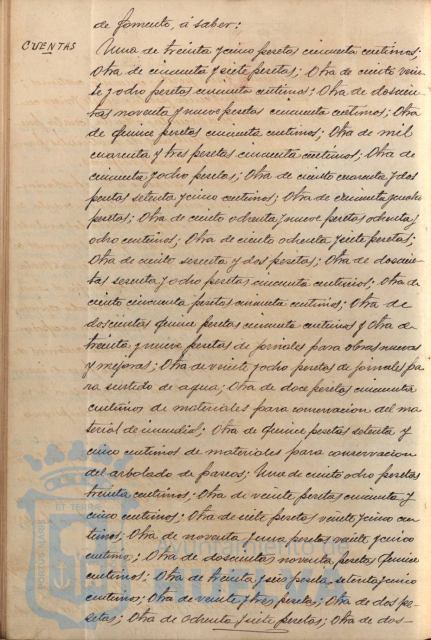 de fomento, á saber:
CUENTAS
Una de treinta y cinco pesetas cincuenta centimos;
Otra de cincuenta y siete pesetas; Otra de ciento vein-
te y ocho pesetas cincuenta centimos; Otra de doscien-
tas noventa y nueve pesetas cincuenta centimos; Otra
de quince pesetas cincuenta centimos; Otra de mil
cuarenta y tres pesetas cincuenta centimos; Otra de
cincuenta y ocho pesetas; Otra de ciento cuarenta y dos
pesetas setenta y cinco centimos; Otra de cincuenta y ocho
pesetas; Otra de ciento ochenta y nueve pesetas ochenta y
ocho centimos; Otra de ciento ochenta y siete pesetas;
Otra de ciento sesenta y dos pesetas; Otra de doscien-
tas sesenta y ocho pesetas cincuenta centimos; Otra de
ciento cincuenta pesetas cincuenta centimos; Otra de
doscientas quince pesetas cincuenta centimos y Otra de
treinta y nueve pesetas de jornales para obras nuevas
y mejoras; Otra de veinte y ocho pesetas de jornales pa-
ra surtido de agua; Otra de doce pesetas cincuenta
centimos de materiales para conservacion del ma-
terial de incendios; Otra de quince pesetas setenta y
cinco centimos de materiales para conservacion
del arbolado de paseos; Una de ciento ocho pesetas
treinta centimos; Otra de veinte pesetas cincuenta y
cinco centimos; Otra de siete pesetas veinte y cinco cen-
timos; Otra de noventa y una pesetas veinte y cinco
centimos; Otra de doscientas noventa pesetas quince
centimos; Otra de treinta y seis pesetas setenta y cinco
centimos; Otra de veinte y tres pesetas; Otra de dos pe-
setas; Otra de ochenta y siete pesetas; Otra de dos-
ET TERRA